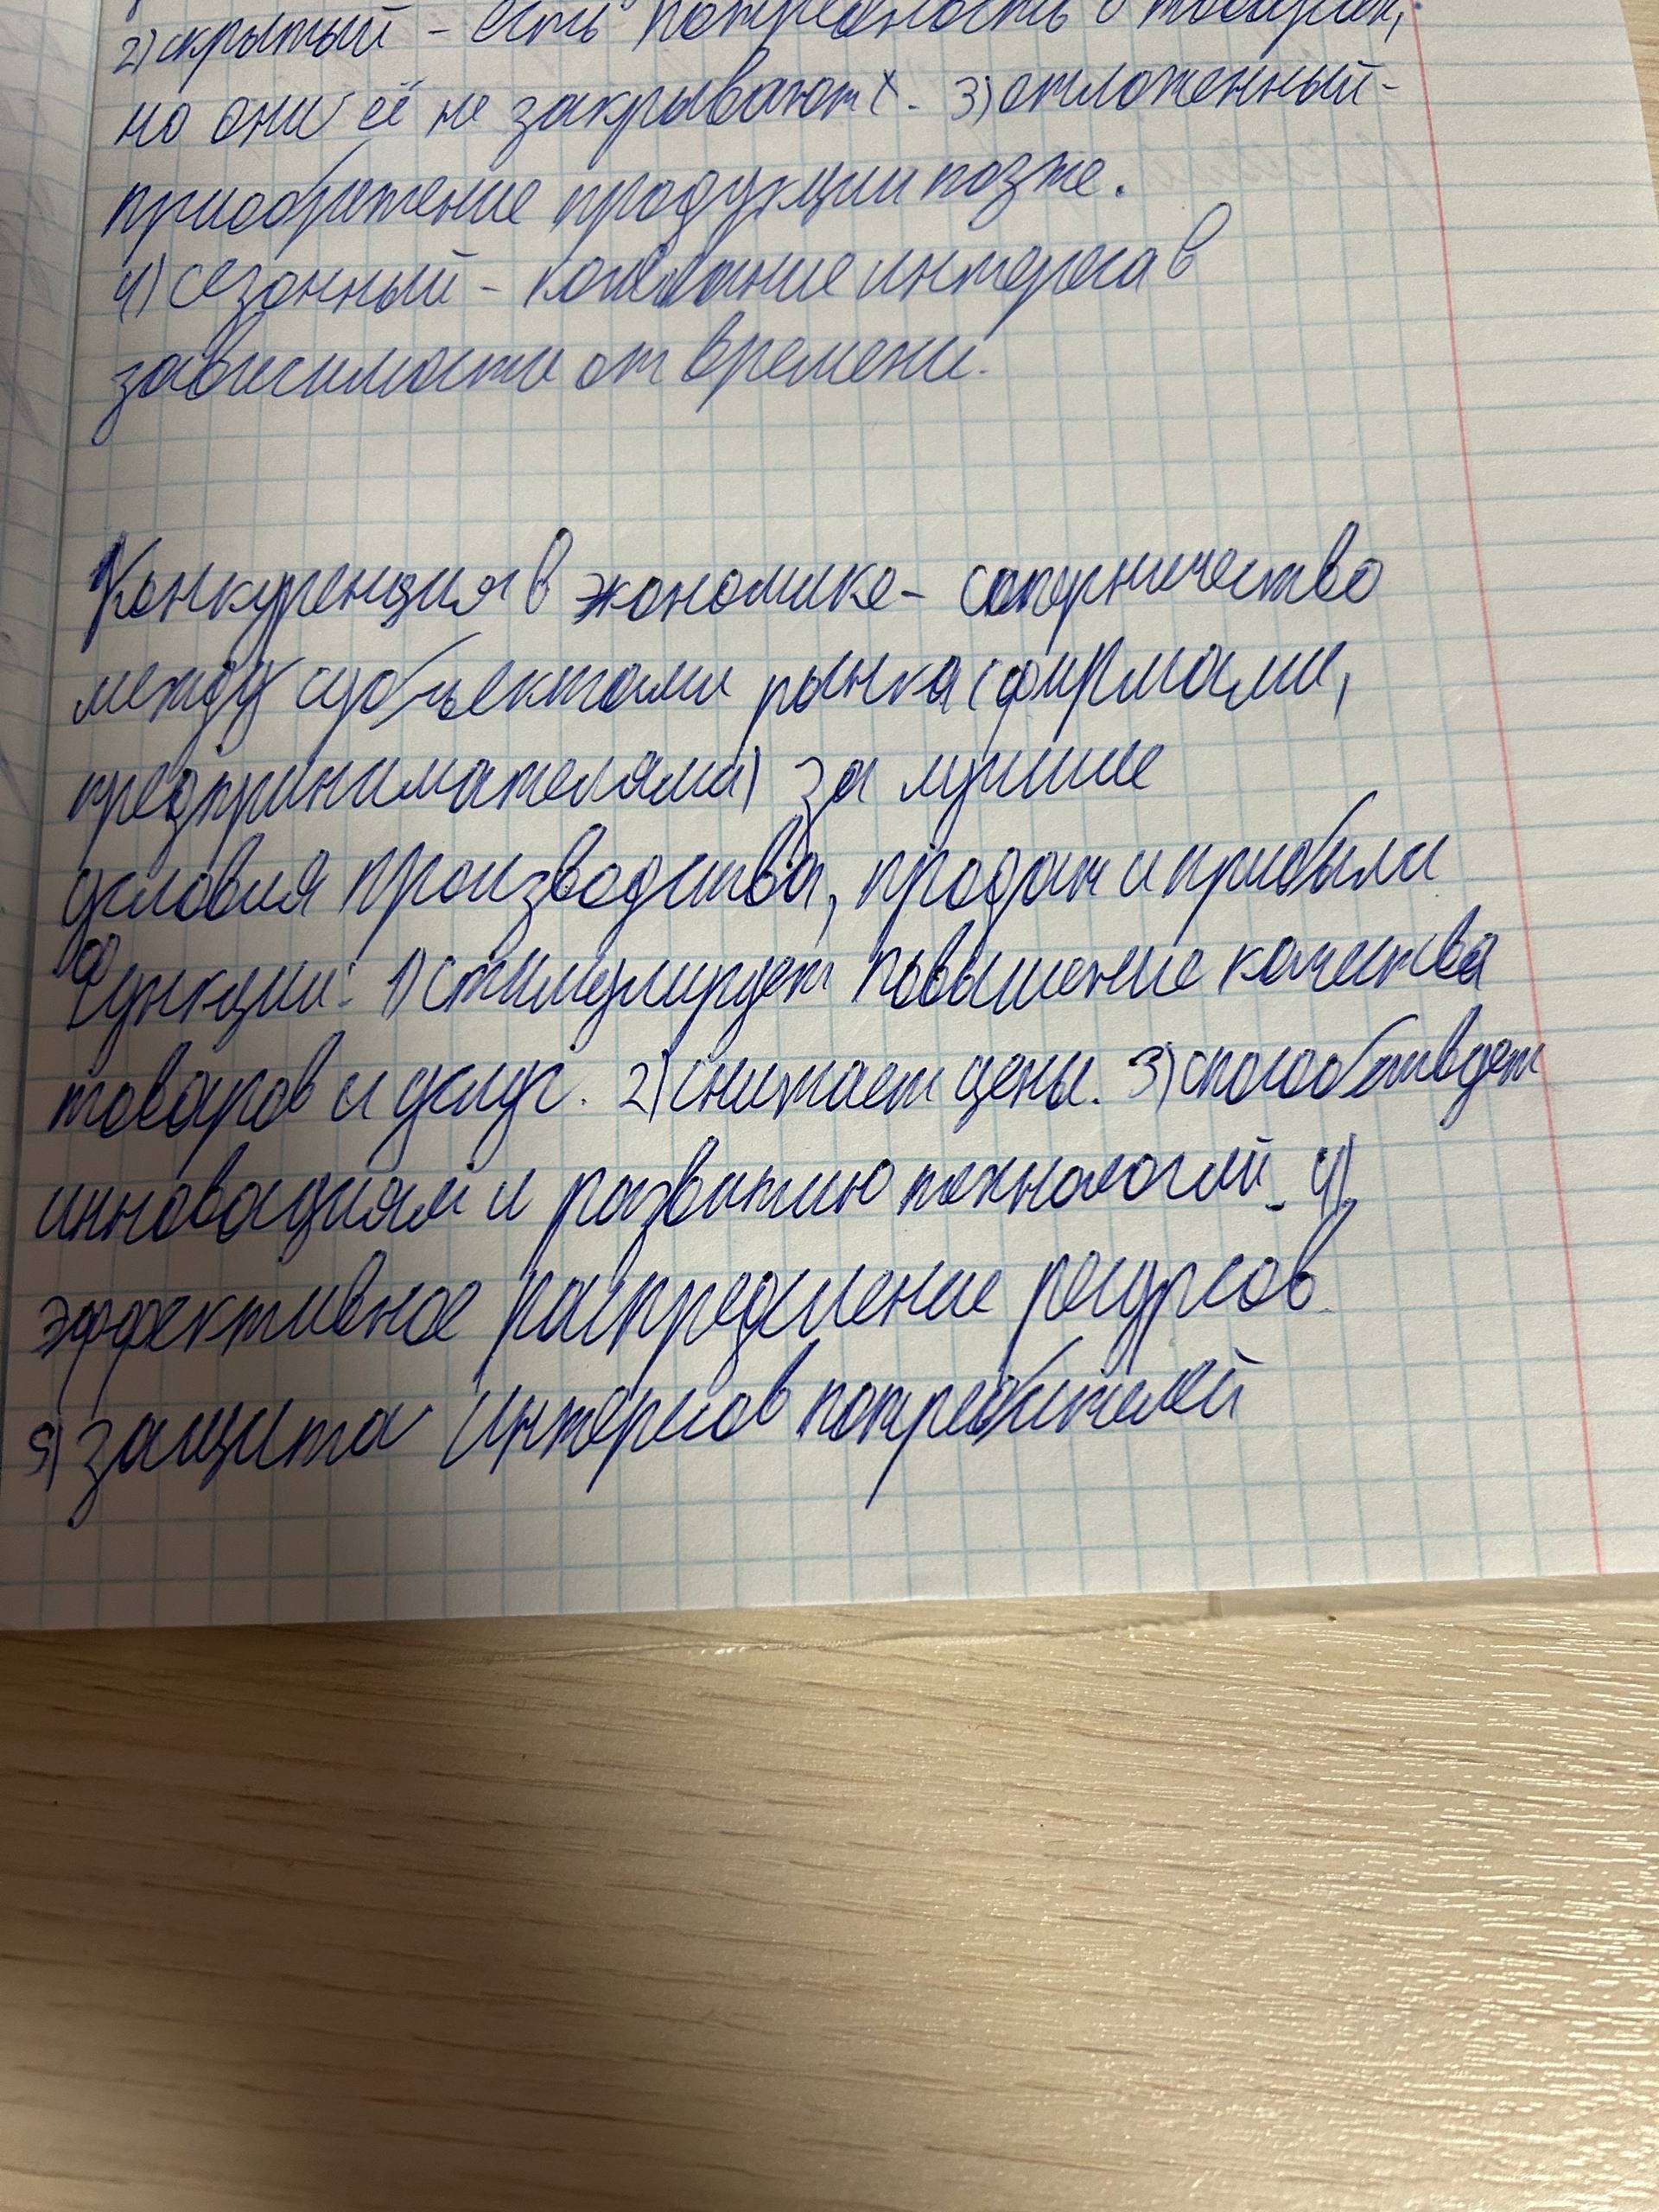 2) скрытый - есть потребность в товарах,
но они её не закрывают. 3) отложенный -
приобретение продукции позже.
4) сезонный - колебание интереса в
зависимости от времени.
Конкуренция в экономике - соперничество
между субъектами рынка (фирмами,
предпринимателями) за лучшие
условия производства, продаж и прибыли
Функции: 1) стимулирует повышение качества
товаров и услуг. 2) снижает цены. 3) способствует
инновациям и развитию технологий. 4)
эффективное распределение ресурсов
5) защита интересов потребителей